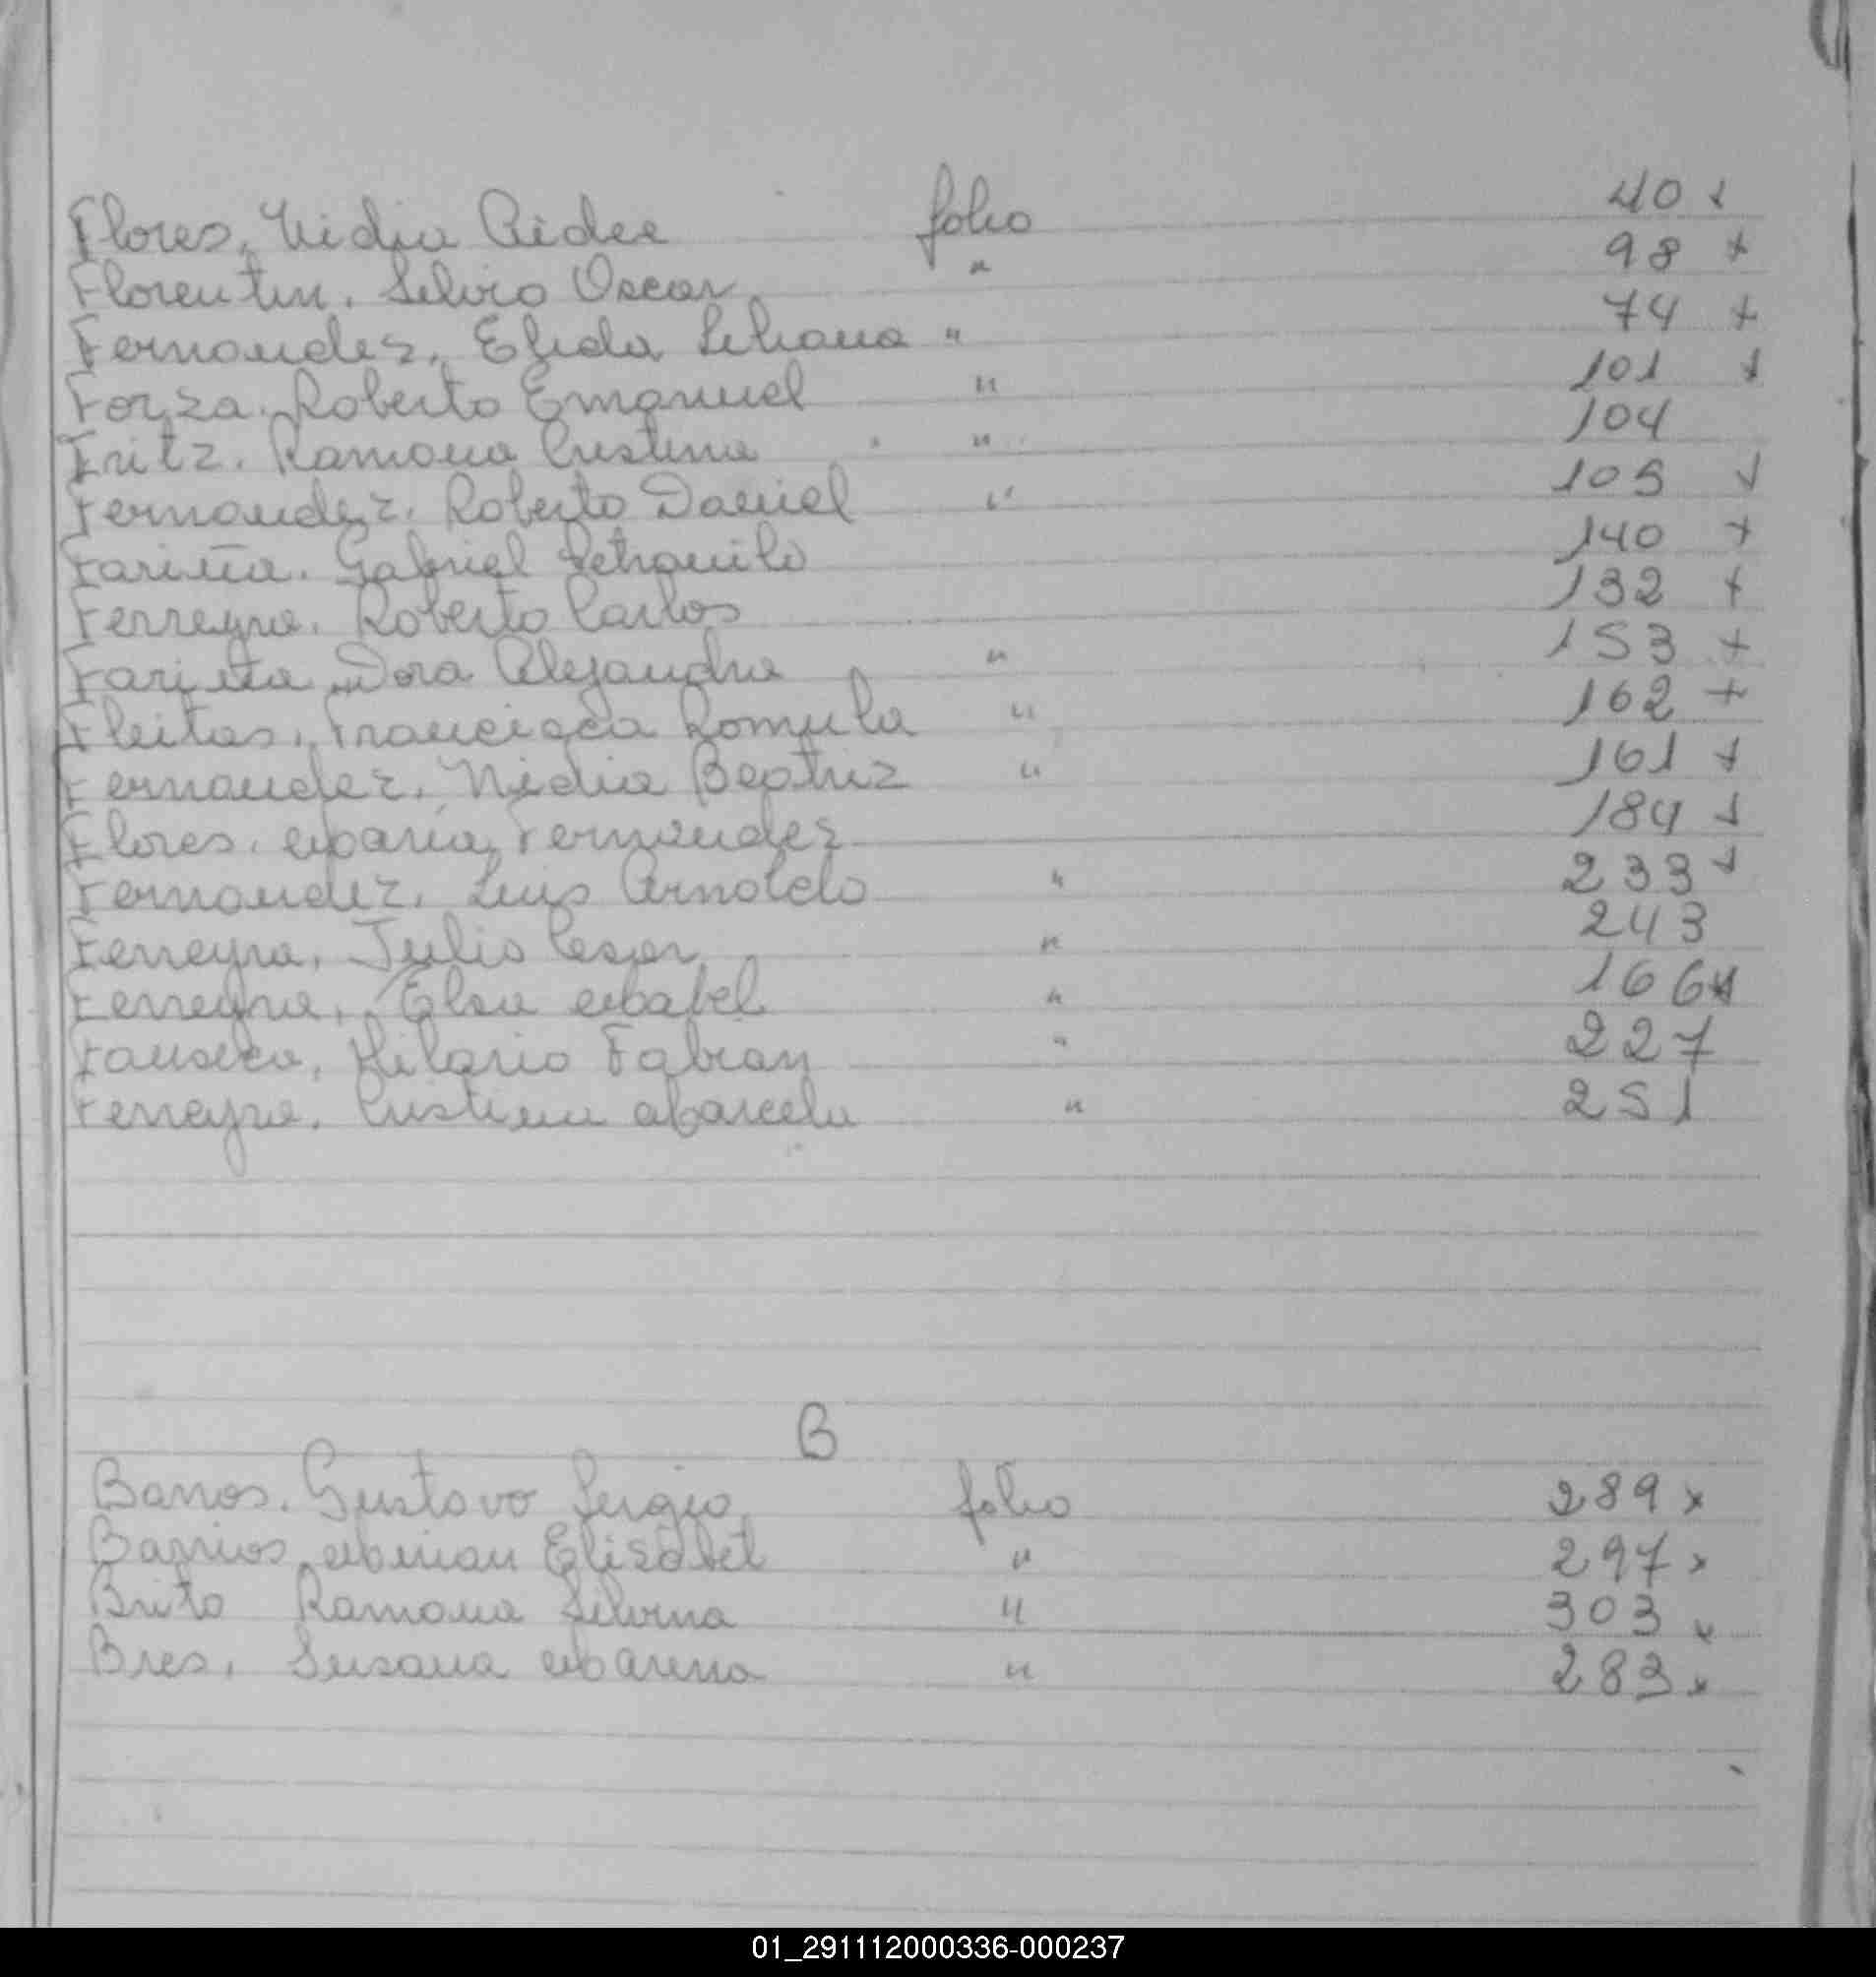 Flores, Nidia Aidee folio 40 x
Florentin, Silvio Oscar " 98 x
Fernandez, Elida Liliana " 74 x
Forza, Roberto Emanuel " 101 x
Fritz, Ramona Cristina " 104
Fernandez, Roberto Daniel " 105 x
Fariña, Gabriel Petronilo 140 x
Ferreyra, Roberto Carlos 132 x
Fariña Dora Alejandra " 153 x
Fleitas, Francisca Romula " 162 x
Fernandez, Nidia Beatriz " 161 x
Flores, Maria Fernandez 184 x
Fernandez, Luis Arnoldo " 233 x
Ferreyra, Julio Cesar " 243
Ferreyra, Elsa Mabel " 166 x
Hilario Fabian " 227
Ferreyra, Cristina Marcela " 251
B
Barros, Gustavo Sergio folio 289 x
Barrios, Mirian Elisabet " 297 x
Brito Ramona Silvina " 303 x
Bres, Susana " 283 x
01_291112000336-000237